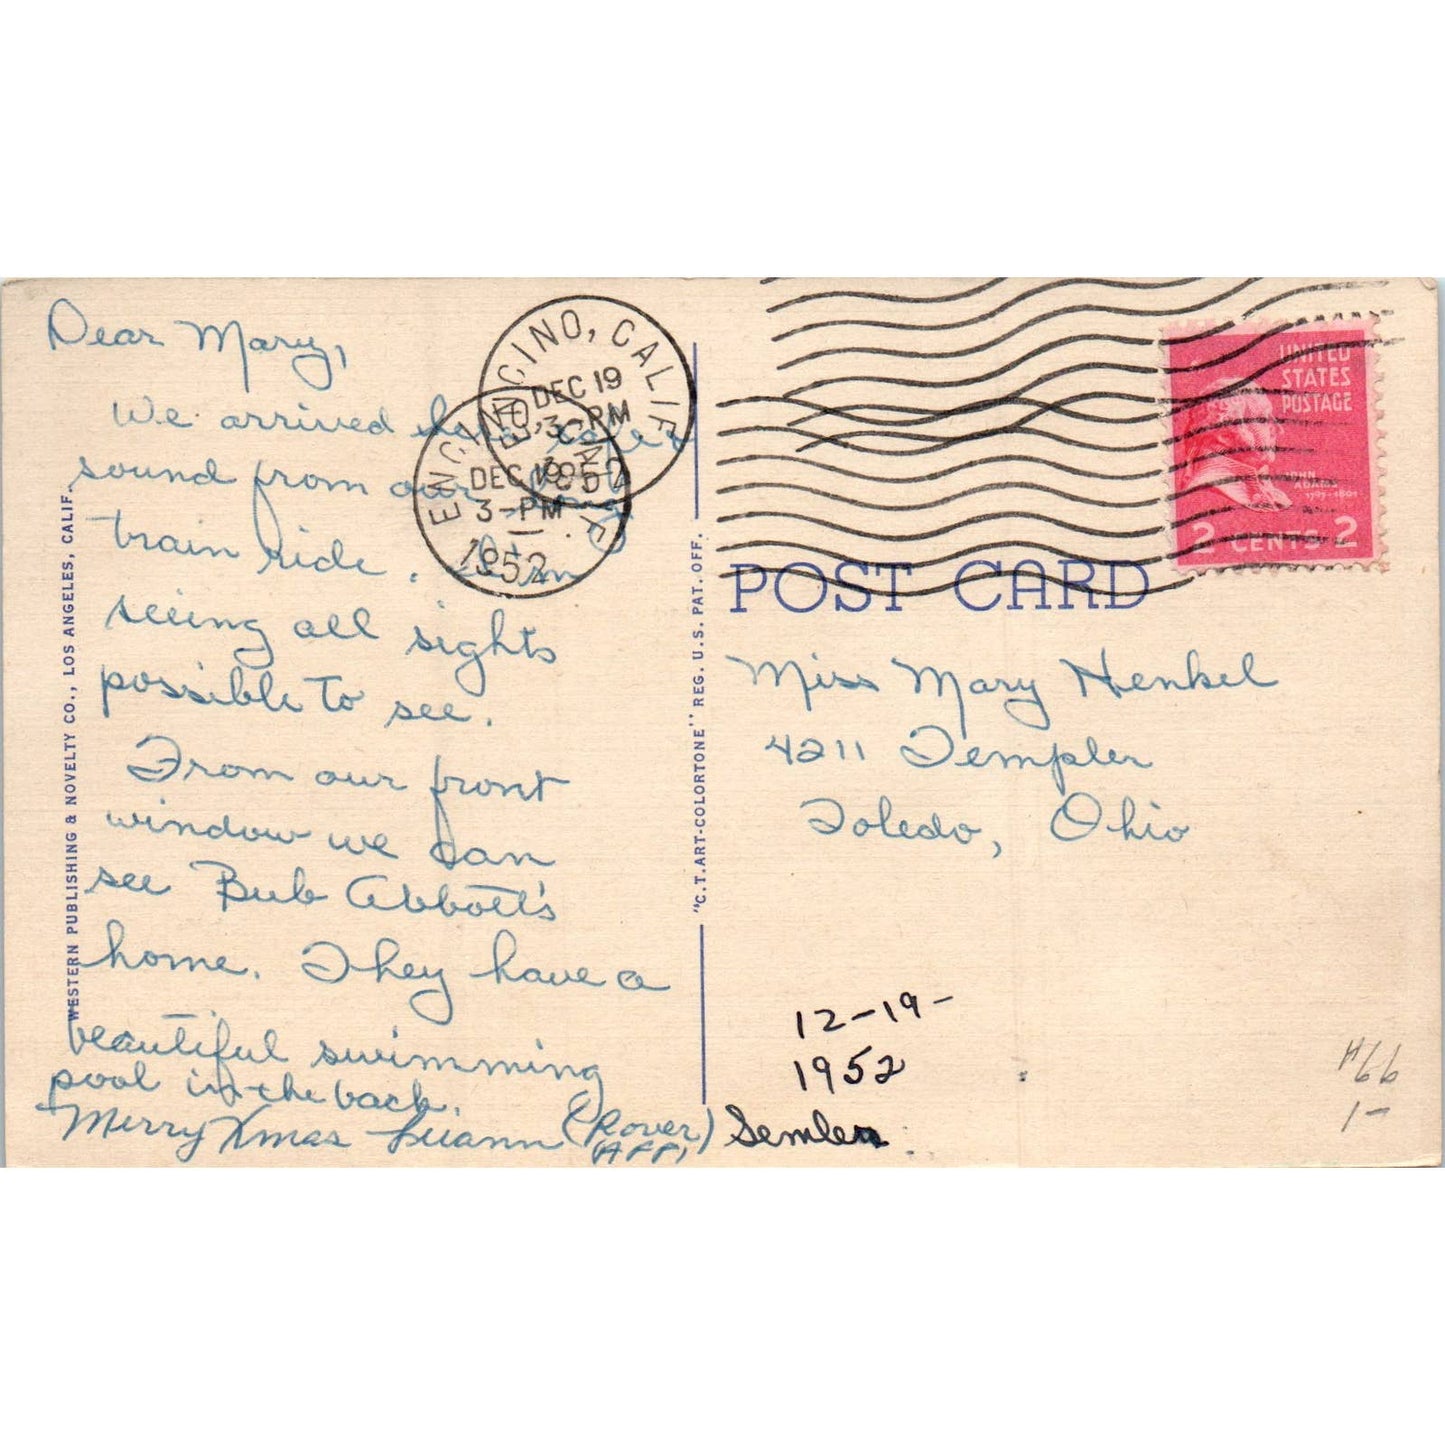 Dear Mary,
We arrived here safe &
sound from our long
train ride. I'm
seeing all sights
possible to see.
From our front
window we can
see Bub Abbott's
home. They have a
beautiful swimming
pool in the back.
Merry Xmas Luann (Rover)
AFF,
Semler
WESTERN PUBLISHING & NOVELTY CO., LOS ANGELES, CALIF.
ENCINO, CALIF.
DEC 19
3-PM
1952
ENCINO, CALIF.
DEC 19
3-PM
1952
"C.T.ART-COLORTONE" REG. U.S. PAT. OFF.
UNITED
STATES
POSTAGE
JOHN
ADAMS
1797-1801
2 CENTS 2
POST CARD
Miss Mary Henkel
4211 Templer
Toledo, Ohio
12-19-
1952
H66
1-